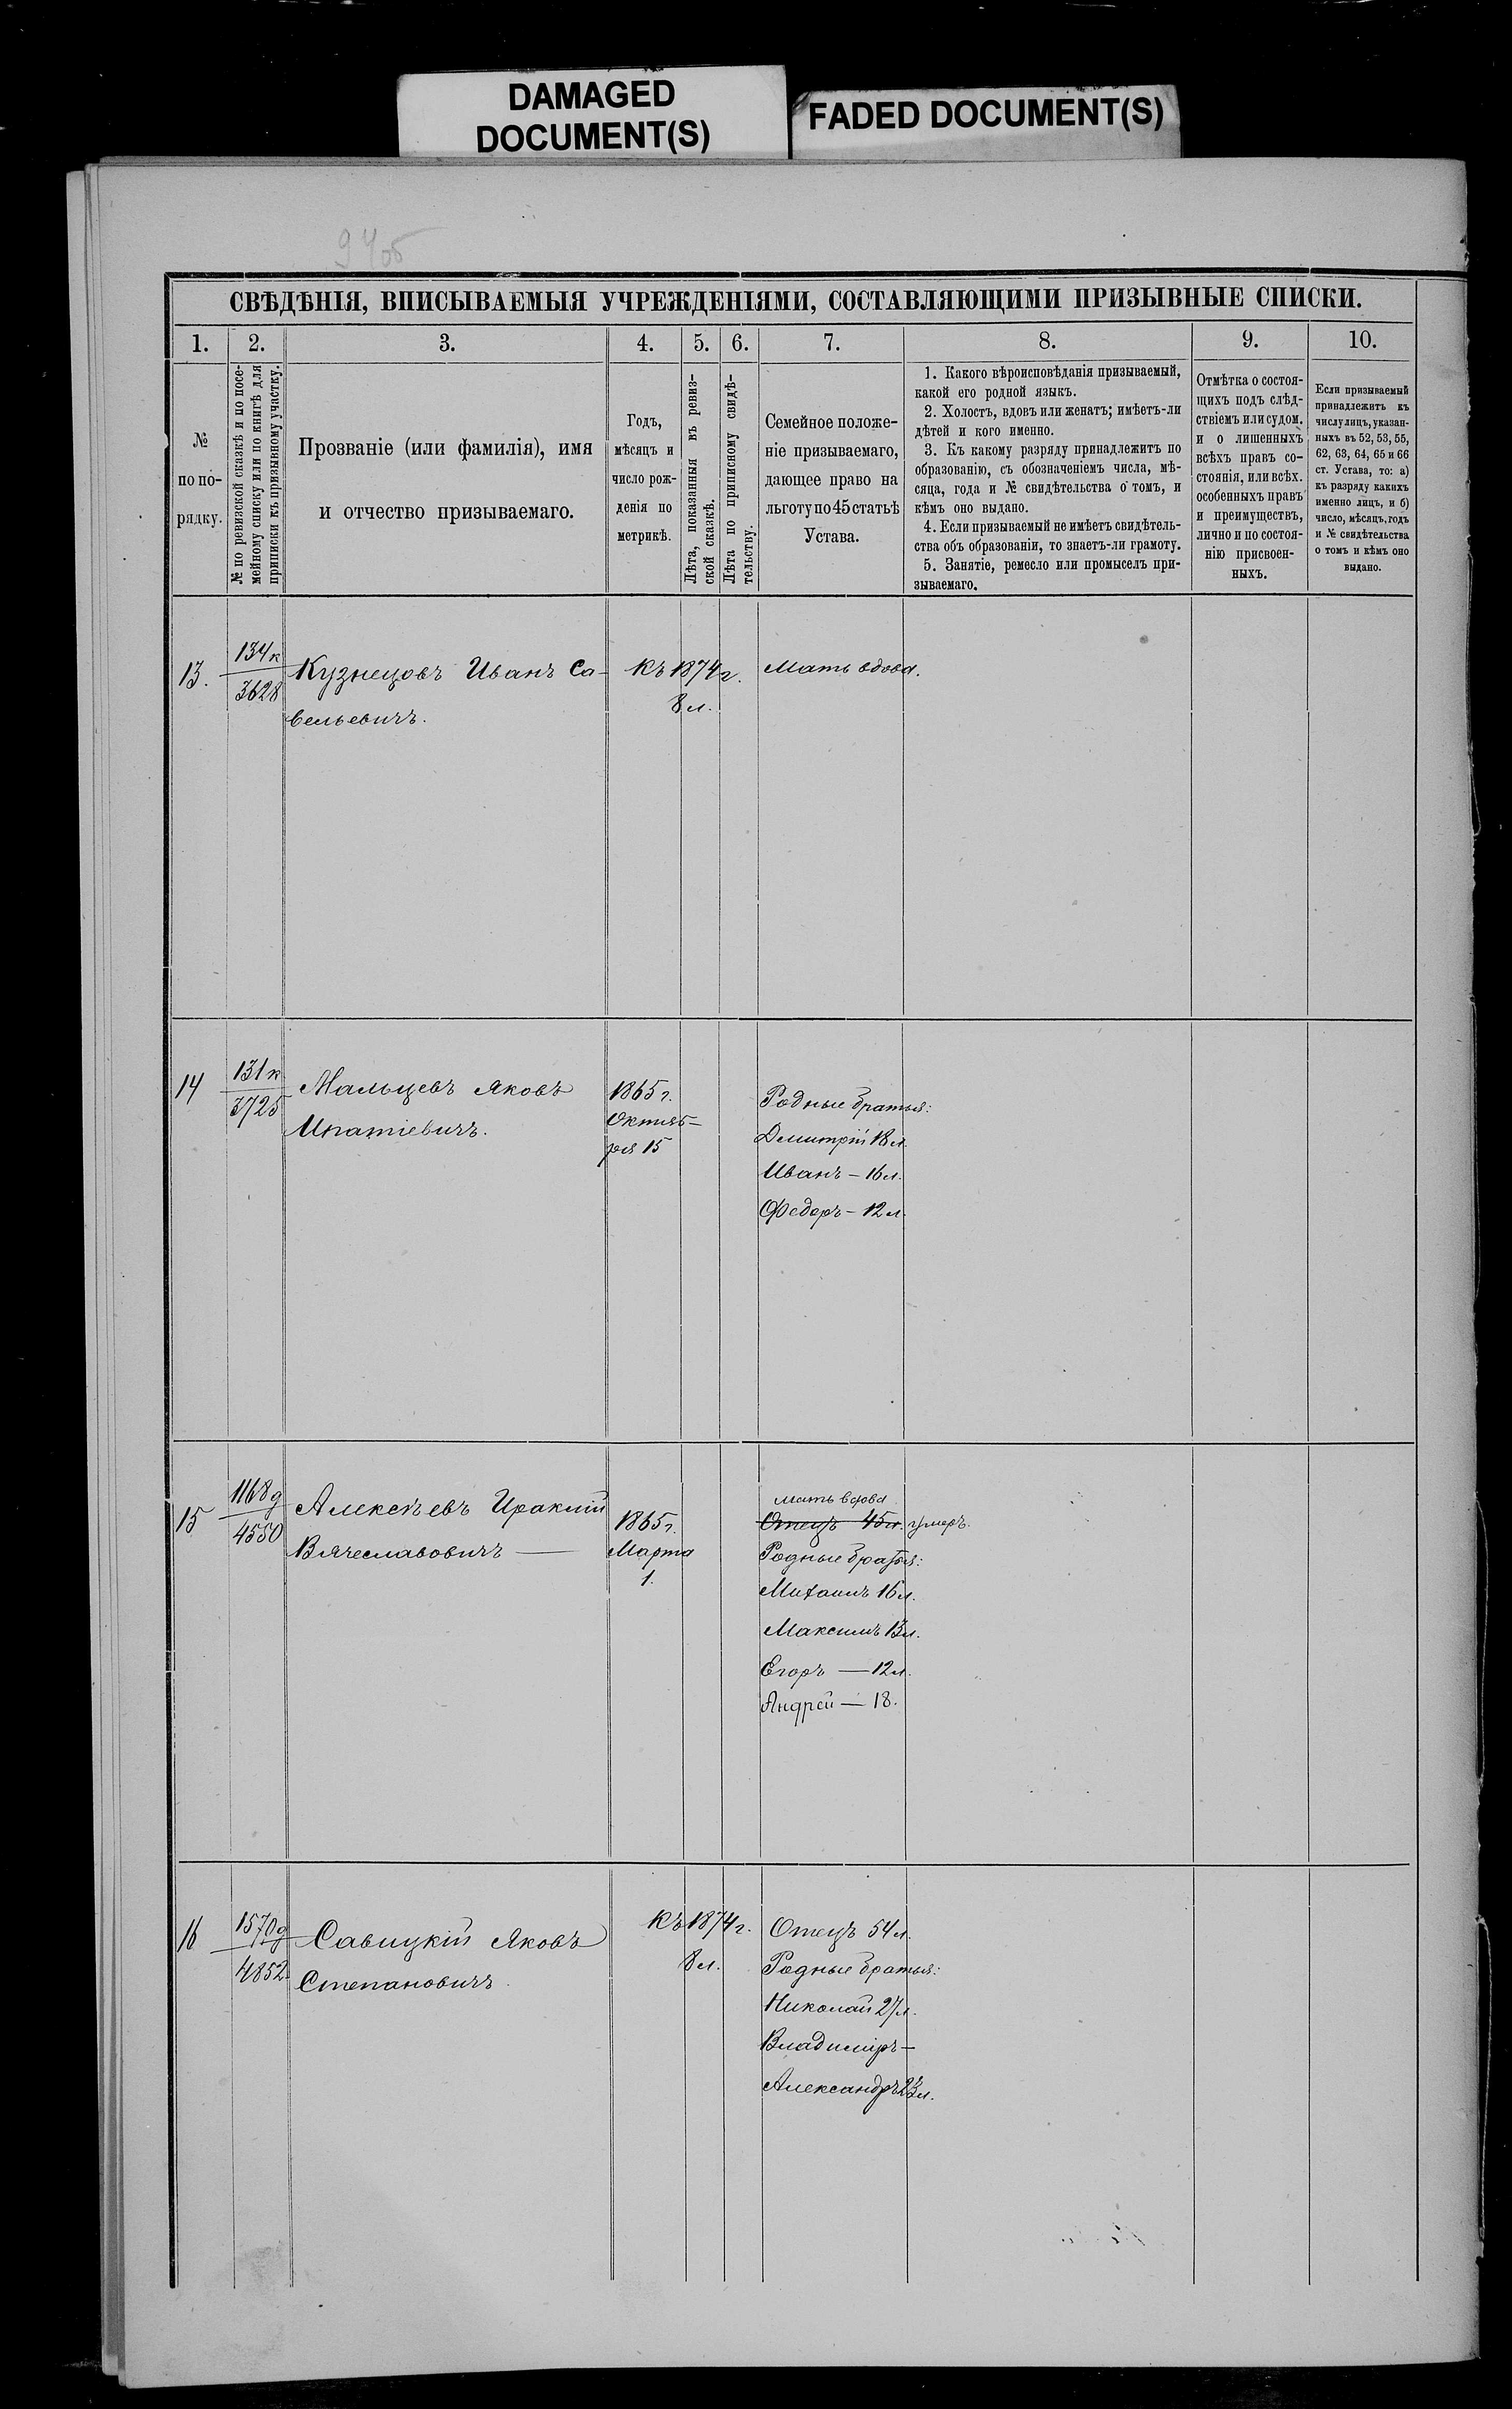 DAMAGED
DOCUMENT(S)
FADED DOCUMENT(S)
94об
СВѢДѢНІЯ, ВПИСЫВАЕМЫЯ УЧРЕЖДЕНІЯМИ, СОСТАВЛЯЮЩИМИ ПРИЗЫВНЫЕ СПИСКИ.
1.
2.
3.
4.
5.
6.
7.
8.
9.
10.
№
по по-
рядку.
№ по ревизской сказкѣ и по посе-
мейному списку или по книгѣ для
приписки къ призывному участку.
Прозваніе (или фамилія), имя
и отчество призываемаго.
Годъ,
мѣсяцъ и
число рож-
денія по
метрикѣ.
Лѣта, показанныя въ ревиз-
ской сказкѣ.
Лѣта по приписному свидѣ-
тельству.
Семейное положе-
ніе призываемаго,
дающее право на
льготу по 45 статьѣ
Устава.
1. Какого вѣроисповѣданія призываемый,
какой его родной языкъ.
2. Холостъ, вдовъ или женатъ; имѣетъ-ли
дѣтей и кого именно.
3. Къ какому разряду принадлежитъ по
образованію, съ обозначеніемъ числа, мѣ-
сяца, года и № свидѣтельства о томъ, и
кѣмъ оно выдано.
4. Если призываемый не имѣетъ свидѣтель-
ства объ образованіи, то знаетъ-ли грамоту.
5. Занятіе, ремесло или промыселъ при-
зываемаго.
Отмѣтка о состоя-
щихъ подъ слѣд-
ствіемъ или судом.
и о лишенныхъ
всѣхъ правъ со-
стоянія, или всѣх.
особенныхъ правъ
и преимуществъ,
лично и по состоя-
нію присвоен-
ныхъ.
Если призываемый
принадлежитъ къ
числу лицъ, указан-
ныхъ въ 52, 53, 55,
62, 63, 64, 65 и 66
ст. Устава, то: а)
къ разряду какихъ
именно лицъ, и б)
число, мѣсяцъ, годъ
и № свидѣтельства
о томъ и кѣмъ оно
выдано.
13.
134к
3628
Кузнецовъ Иванъ Са-
вельевичъ.
Къ 1874 г.
8 л.
Мать вдова.
14
131к
3725
Мальцевъ Яковъ
Ипатіевичъ.
1865 г.
Октяб-
ря 15
Родные братья:
Дмитрій 18 л.
Иванъ — 16 л.
Федоръ — 12 л.
15
1168д
4550
Алексѣевъ Ираклій
Вячеславовичъ —
1865 г.
Марта
1.
мать вдова
Отецъ 45 л. умеръ.
Родные братья:
Михаилъ 16 л.
Максимъ 13 л.
Егоръ — 12 л.
Андрей — 18.
16
1570д
4852
Савицкій Яковъ
Степановичъ.
Къ 1874 г.
8 л.
Отецъ 54 л.
Родные братья:
Николай 27 л.
Владиміръ —
Александръ 23 л.